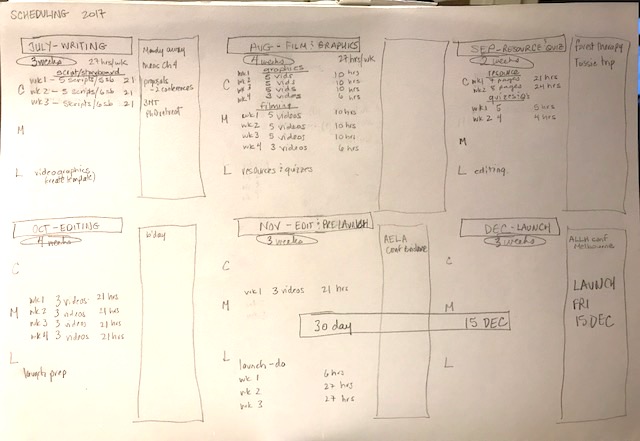 SCHEDULING 2017
JULY-WRITING
3 weeks 27 hrs/wk
script/storyboard
wk1 - 5 scripts/5 sb 21
C wk2 - 5 scripts/6 sb 21
wk3 - 5 scripts/6 sb 21
M
L video graphics
Mandy away
Meas Ch 4
proposals
- 2 conferences
3MT
AUG - FILM & GRAPHICS
4 weeks 27 hrs/wk
graphics
wk1 5 vids 10 hrs
C wk2 5 vids 10 hrs
wk3 5 vids 10 hrs
wk4 3 videos 6 hrs
filming
M wk1 5 videos 10 hrs
wk2 5 videos 10 hrs
wk3 5 videos 10 hrs
wk4 3 videos 6 hrs
L resources & quizzes
SEP - RESOURCE & QUIZ
2 weeks
resource
C wk1 7 pages 21 hrs
wk2 8 pages 24 hrs
quizzes
wk1 5 5 hrs
wk2 4 4 hrs
M
L editing
Tassie trip
OCT - EDITING
4 weeks
C
M wk1 3 videos 21 hrs
wk2 3 videos 21 hrs
wk3 3 videos 21 hrs
wk4 3 videos 21 hrs
L
launch prep
b'day
NOV - EDIT & PRELAUNCH
3 weeks
C
wk1 3 videos 21 hrs
M
30 day 15 DEC
L
launch-do
wk 1 6 hrs
wk 2 27 hrs
wk 3 27 hrs
AELA
conf
DEC - LAUNCH
3 weeks
C
M
L
conf
Melbourne
LAUNCH
FRI
15 DEC